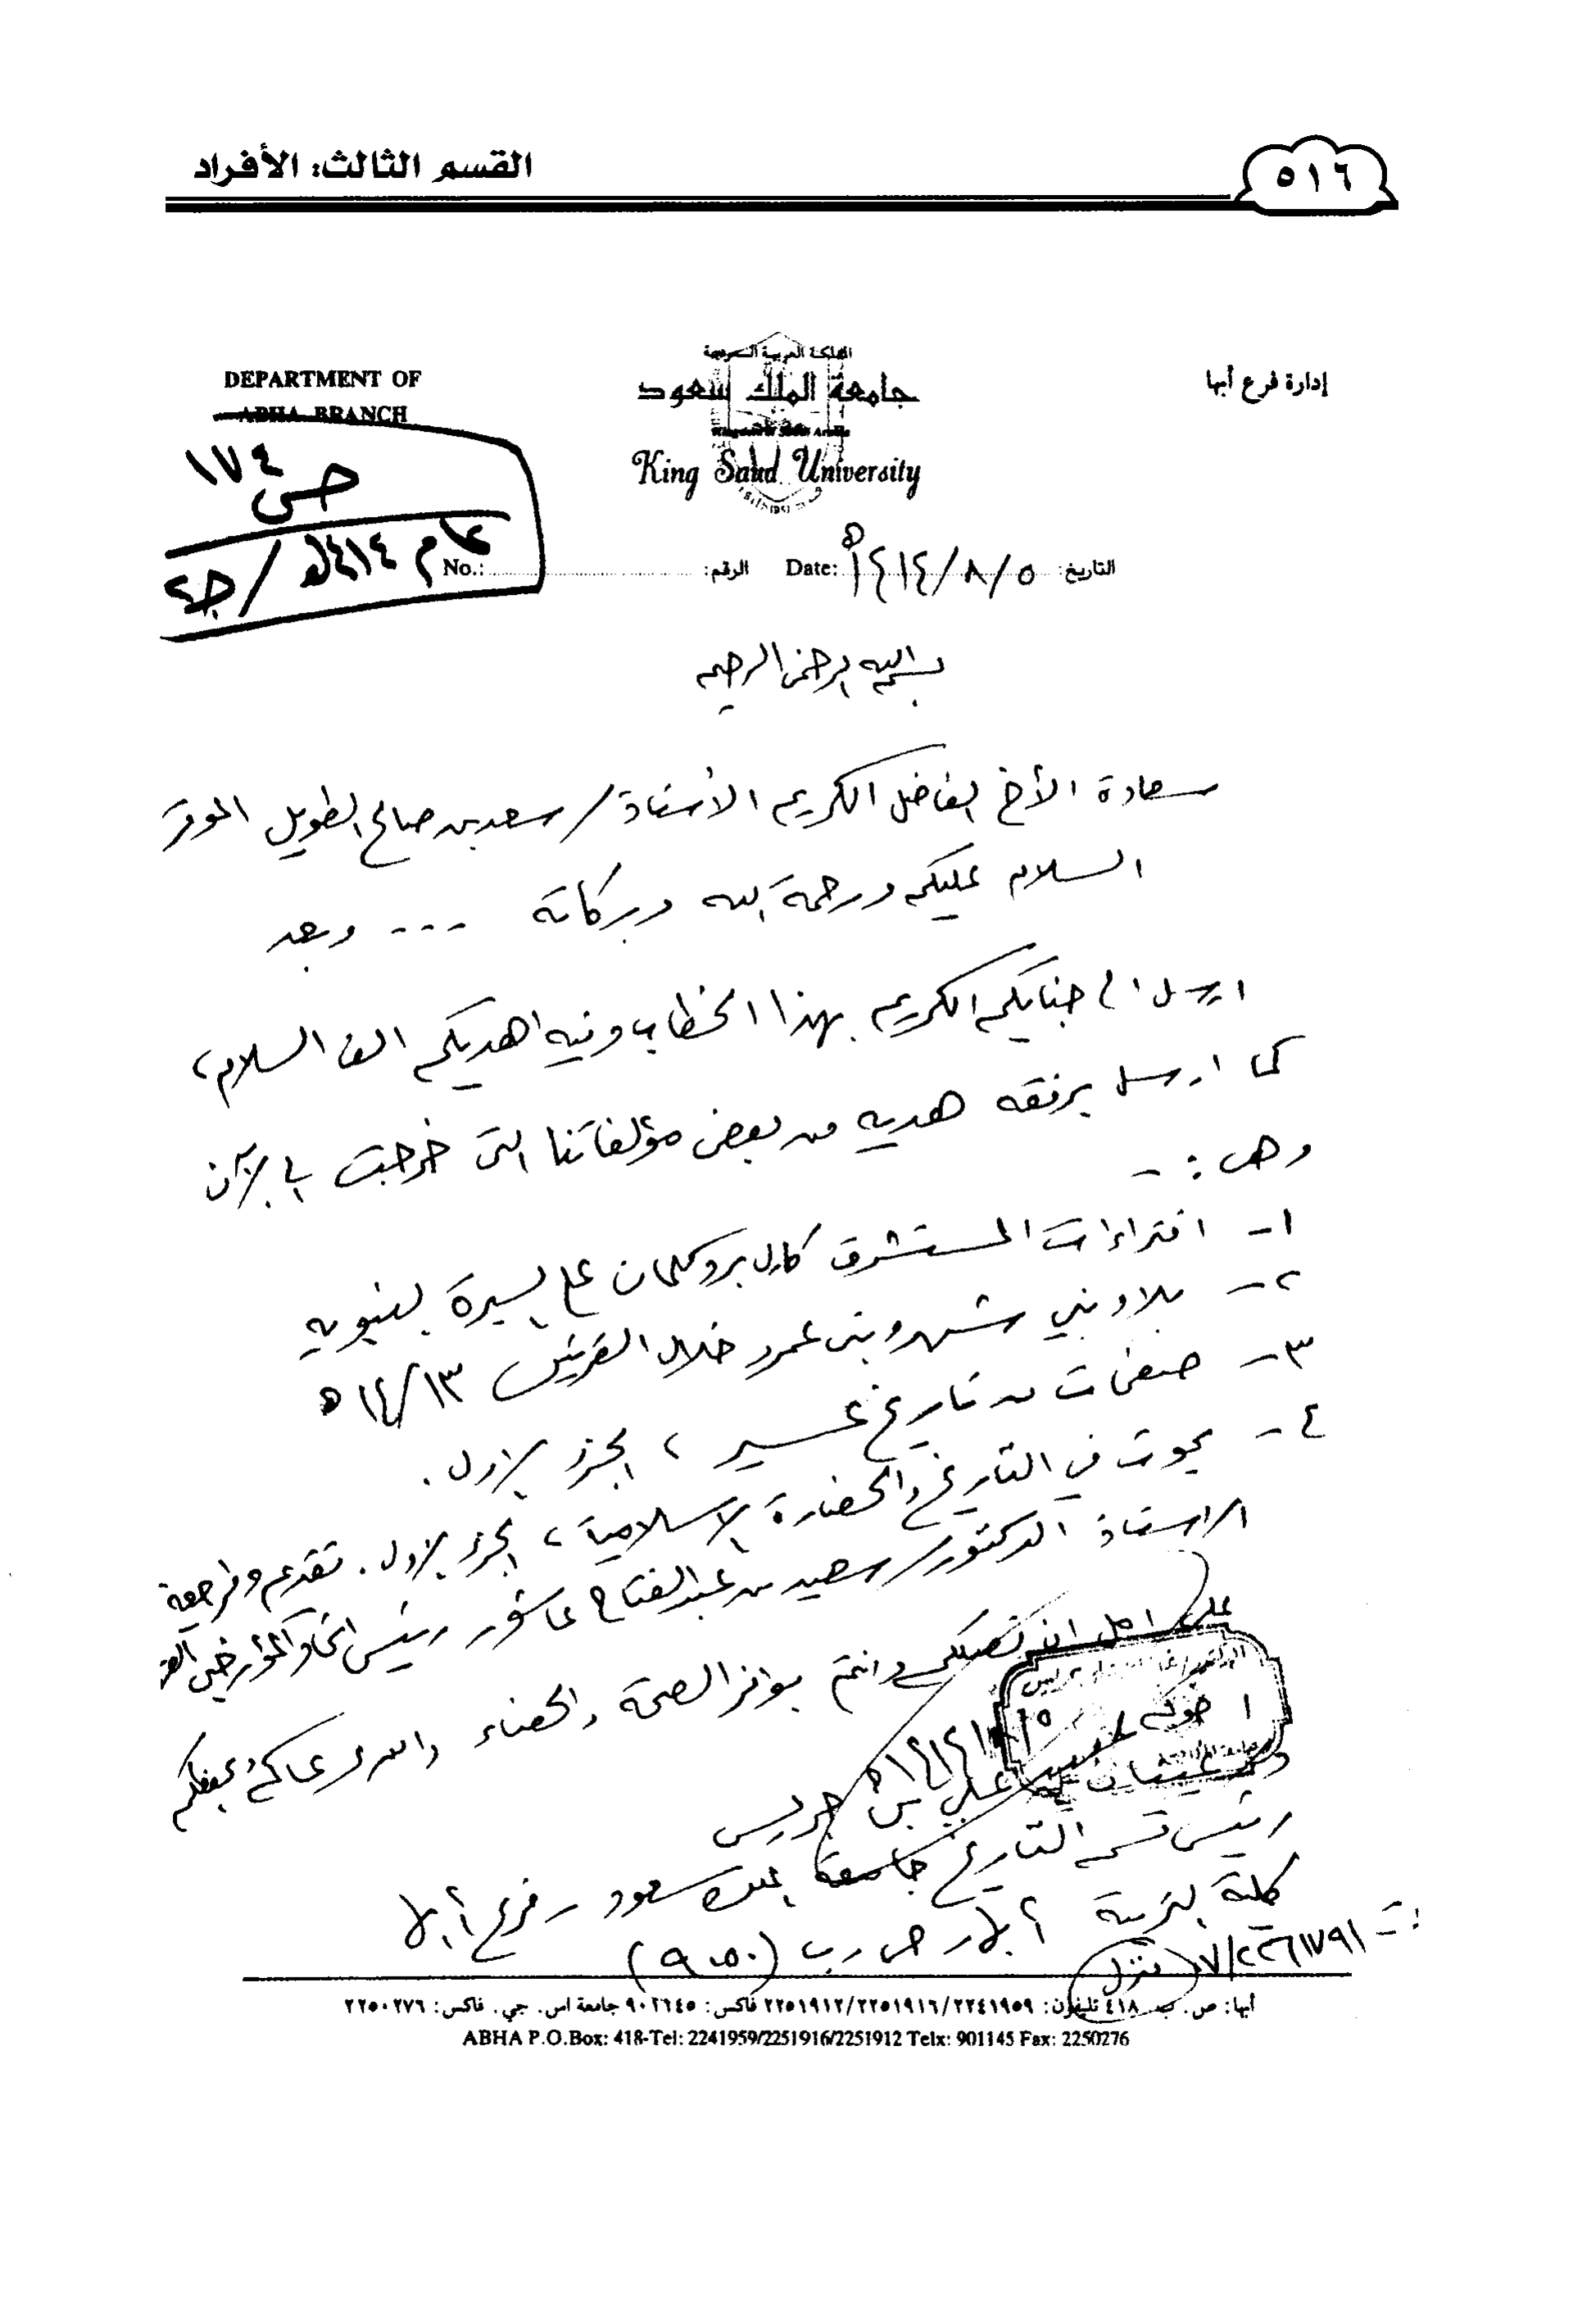 القسم الثالث: الأفراد
٥١٦
إدارة فرع أبها
المملكة العربية السعودية
جامعة الملك سعود
King Saud University
DEPARTMENT OF
ABHA BRANCH
ص ١٧٤
عام ١٤١٤هـ / ج٢
التاريخ: ٥/٨/١٤١٤هـ Date: الرقم: No.:
بسم الله الرحمن الرحيم
سعادة الأخ الفاضل الكريم الأستاذ / سعد بن صالح الطويل الموقر
السلام عليكم ورحمة الله وبركاته ... وبعد
ارسل الى جنابكم الكريم بهذا الخطاب وفيه اهديكم الف السلام،
كما ارسل برفقه هديه من بعض مؤلفاتنا التى خرجت الى الآن
وهى :-
١- افتراءات المستشرق كارل بروكلمان على السيرة النبويه
٢- بلاد بني شهر وبنى عمرو خلال القرنين ١٣/١٤هـ
٣- صفحات من تاريخ عسير، الجزء الاول.
٤- بحوث في التاريخ والحضارة الاسلامية، الجزء الاول. تقديم ومراجعة
الاستاذ الدكتور / سعيد عبد الفتاح عاشور رئيس اتحاد المؤرخين
على امل ان تصلكم وانتم بوافر الصحة والله يرعاكم يحفظكم
اخوكم
٥/٨/١٤١٤هـ
غيثان بن علي بن جريس
رئيس قسم التاريخ جامعة الملك سعود - فرع أبها
كلية التربية أبها - ص . ب (٩٠٥٠)
ت : ٠٧/٢٢٦١٧٩١ منزل
أبها: ص. ب. ٤١٨ تليفون: ٢٢٤١٩٥٩/٢٢٥١٩١٦/٢٢٥١٩١٢ فاكس: ٩٠٢٦٤٥ جامعة اس. جي. فاكس: ٢٢٥٠٢٧٦
ABHA P.O.Box: 418-Tel: 2241959/2251916/2251912 Telx: 901145 Fax: 2250276